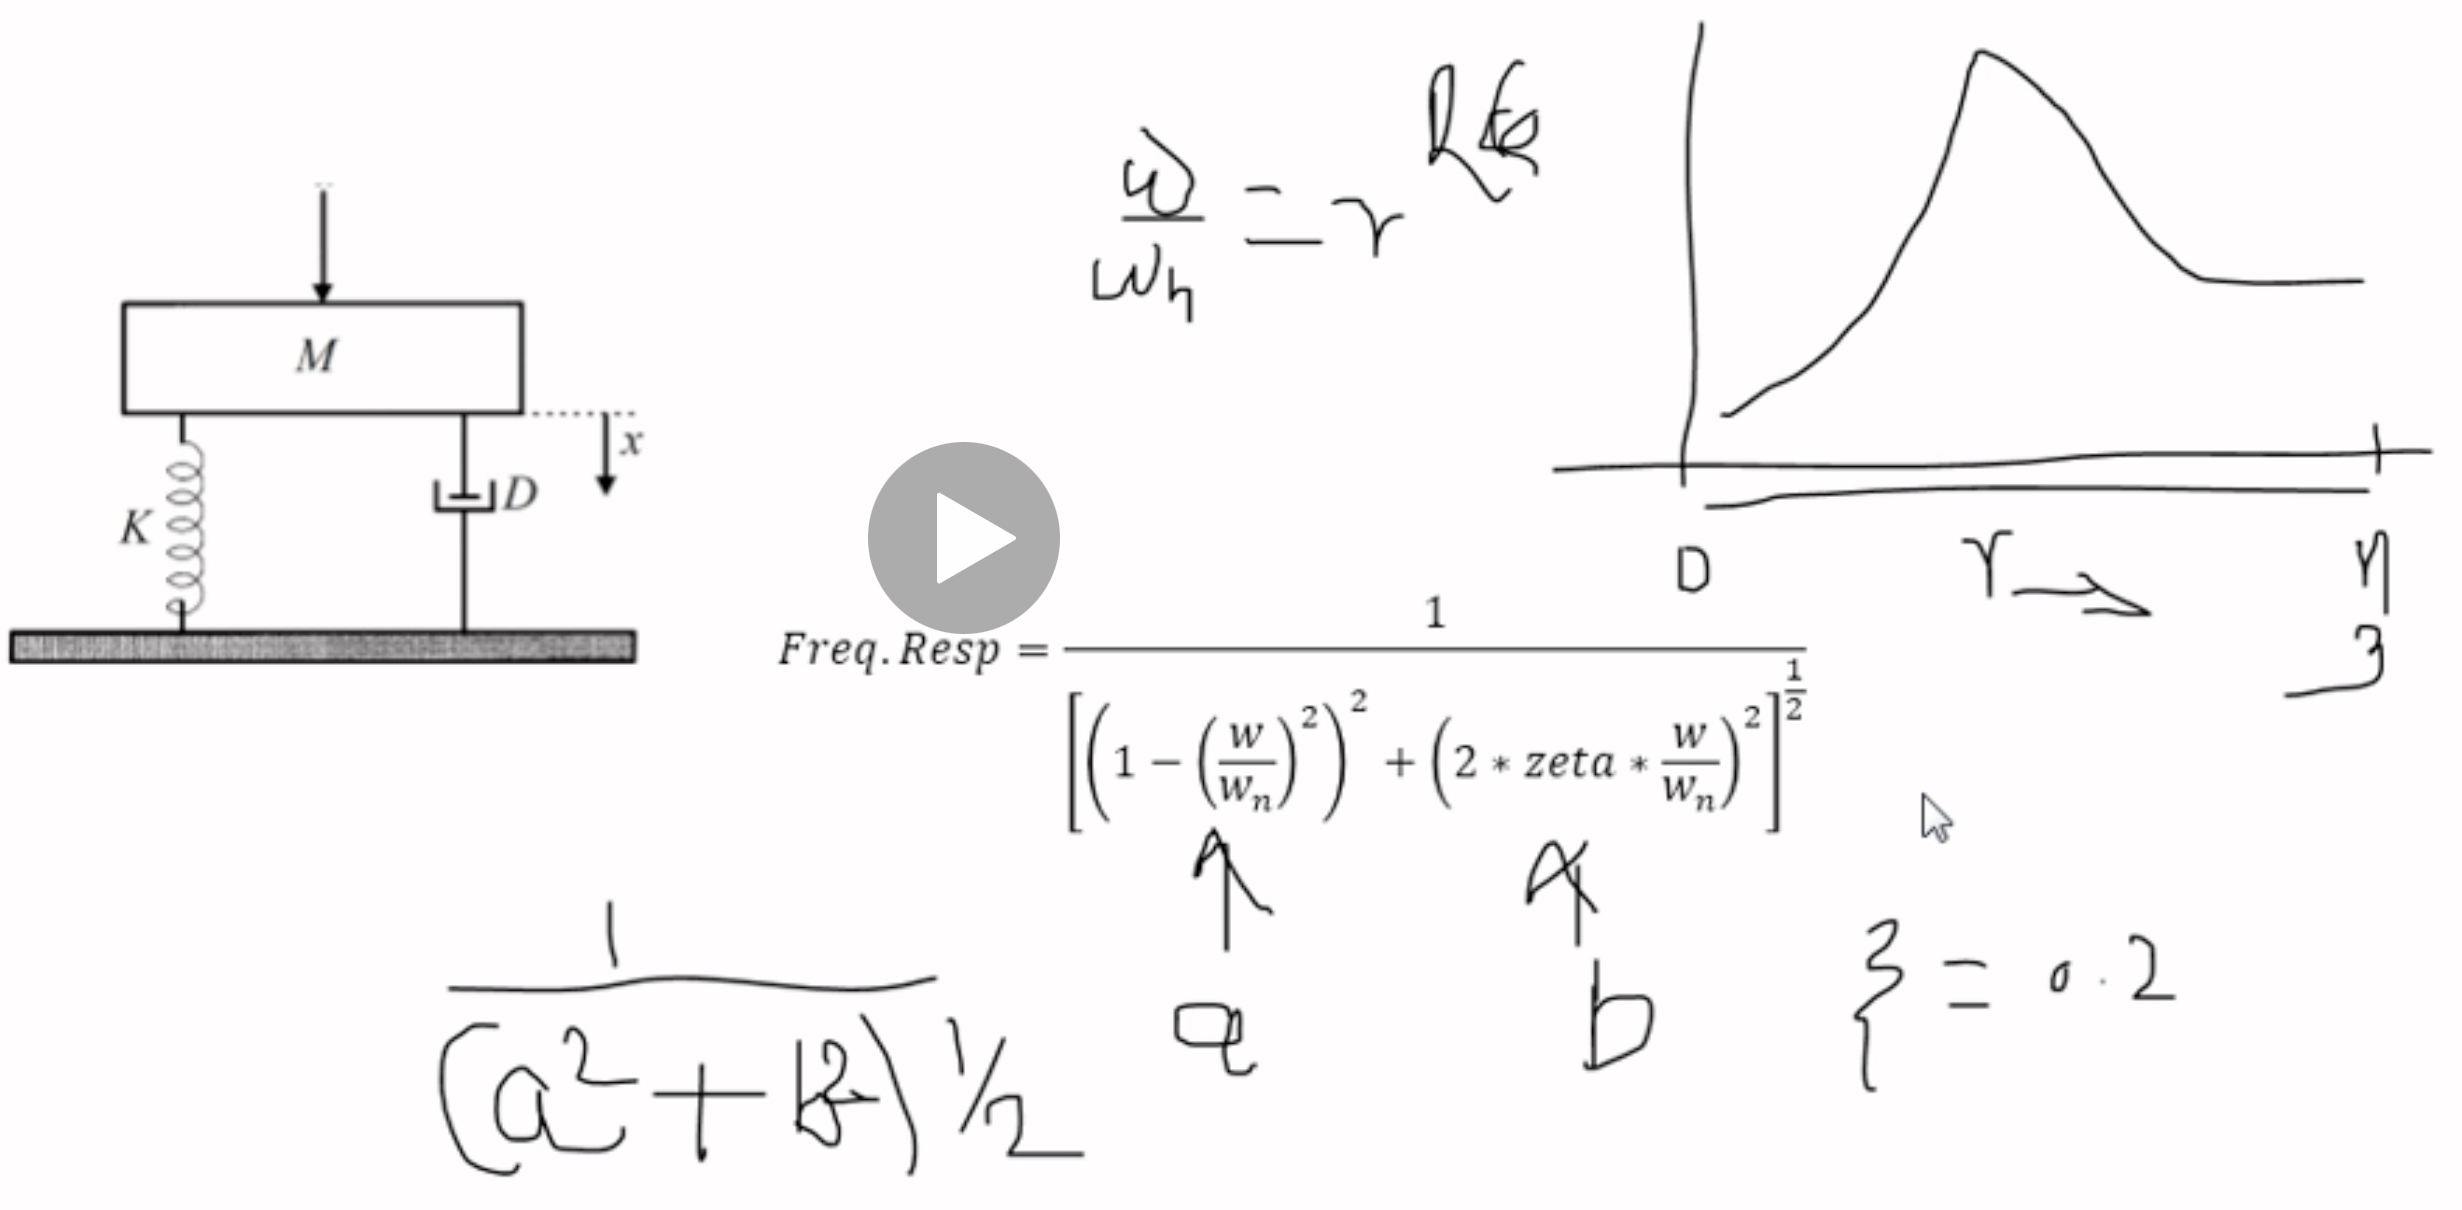 M
x
K
D
w/wn = r
0 r 4
3
Freq.Resp = 1 / [(1 − (w/wₙ)²)² + (2 * zeta * w/wₙ)²]^(1/2)
a b
1 / (a² + b²)^1/2
ξ = 0.2